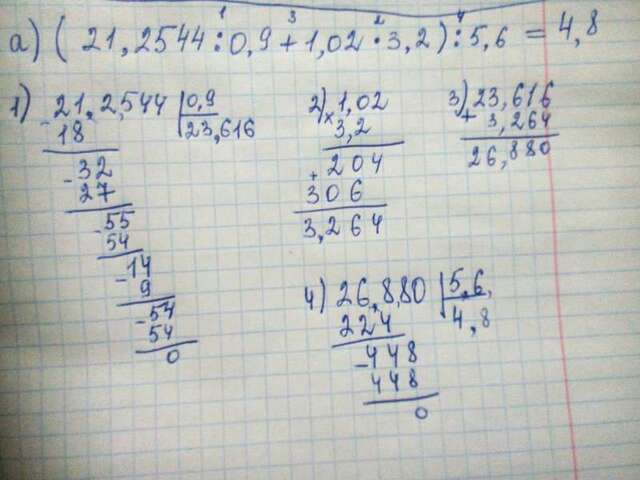 1 3 2 4
а) ( 21,2544 : 0,9 + 1,02 · 3,2 ) : 5,6 = 4,8
1) 21,2,544 | 0,9
- 18 23,616
- 32
27
- 55
54
- 14
9
- 54
54
0
2) × 1,02
3,2
+ 204
306
3,264
3) + 23,616
3,264
26,880
4) 26,8,80 | 5,6,
224 4,8
- 448
448
0